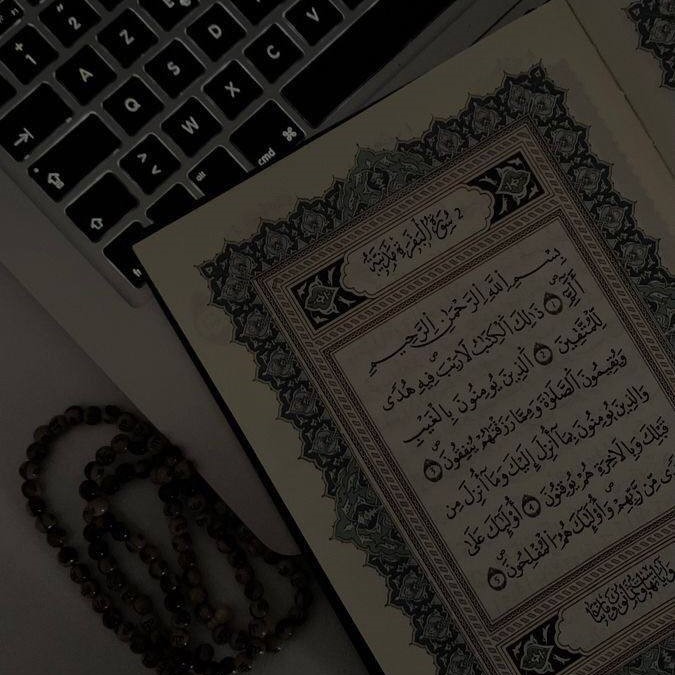 + 1
" 2
A Z
Q S D
> < W X C V
alt cmd ⌘
2 سُورَةُ الْبَقَرَةِ مَدَنِيَّةٌ
بِسْمِ اللَّهِ الرَّحْمَٰنِ الرَّحِيمِ
الٓمٓ ١ ذَٰلِكَ الْكِتَٰبُ لَا رَيْبَ فِيهِ هُدًى
لِلْمُتَّقِينَ ٢ الَّذِينَ يُؤْمِنُونَ بِالْغَيْبِ
وَيُقِيمُونَ الصَّلَوٰةَ وَمِمَّا رَزَقْنَٰهُمْ يُنْفِقُونَ ٣
وَالَّذِينَ يُؤْمِنُونَ بِمَا أُنْزِلَ إِلَيْكَ وَمَا أُنْزِلَ مِنْ
قَبْلِكَ وَبِالْآخِرَةِ هُمْ يُوقِنُونَ ٤ أُولَٰئِكَ عَلَىٰ
مِنْ رَبِّهِمْ وَأُولَٰئِكَ هُمُ الْمُفْلِحُونَ ٥